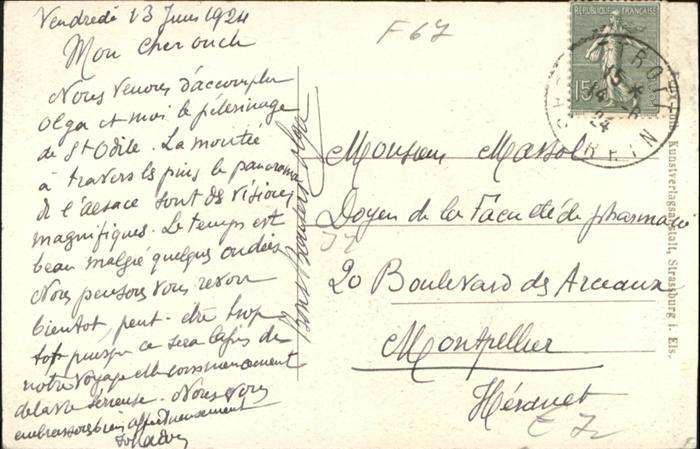 Vendredi 13 Juin 1924
Mon cher oncle
Nous venons d'accomplir
Olga et moi le pélerinage
de St Odile. La montée
à travers les pins le panorama
de l'alsace sont des visions
magnifiques. Le temps est
beau malgré quelques ondées
Nous pensons vous revoir
bientot, peut-être trop
tot puisque ce sera la fin de
notre voyage et le commencement
de la vie sérieuse. Nous vous
embrassons bien affectueusement
Bons Baisers Olga
F 67
RÉPUBLIQUE FRANÇAISE
15
OTTROTT
15 *
14 - 6
24
BAS RHIN
Monsieur Massol
Doyen de la Faculté de pharmacie
20 Boulevard des Arceaux
Montpellier
Hérault
Kunstverlagsanstalt, Strassburg i. Els.